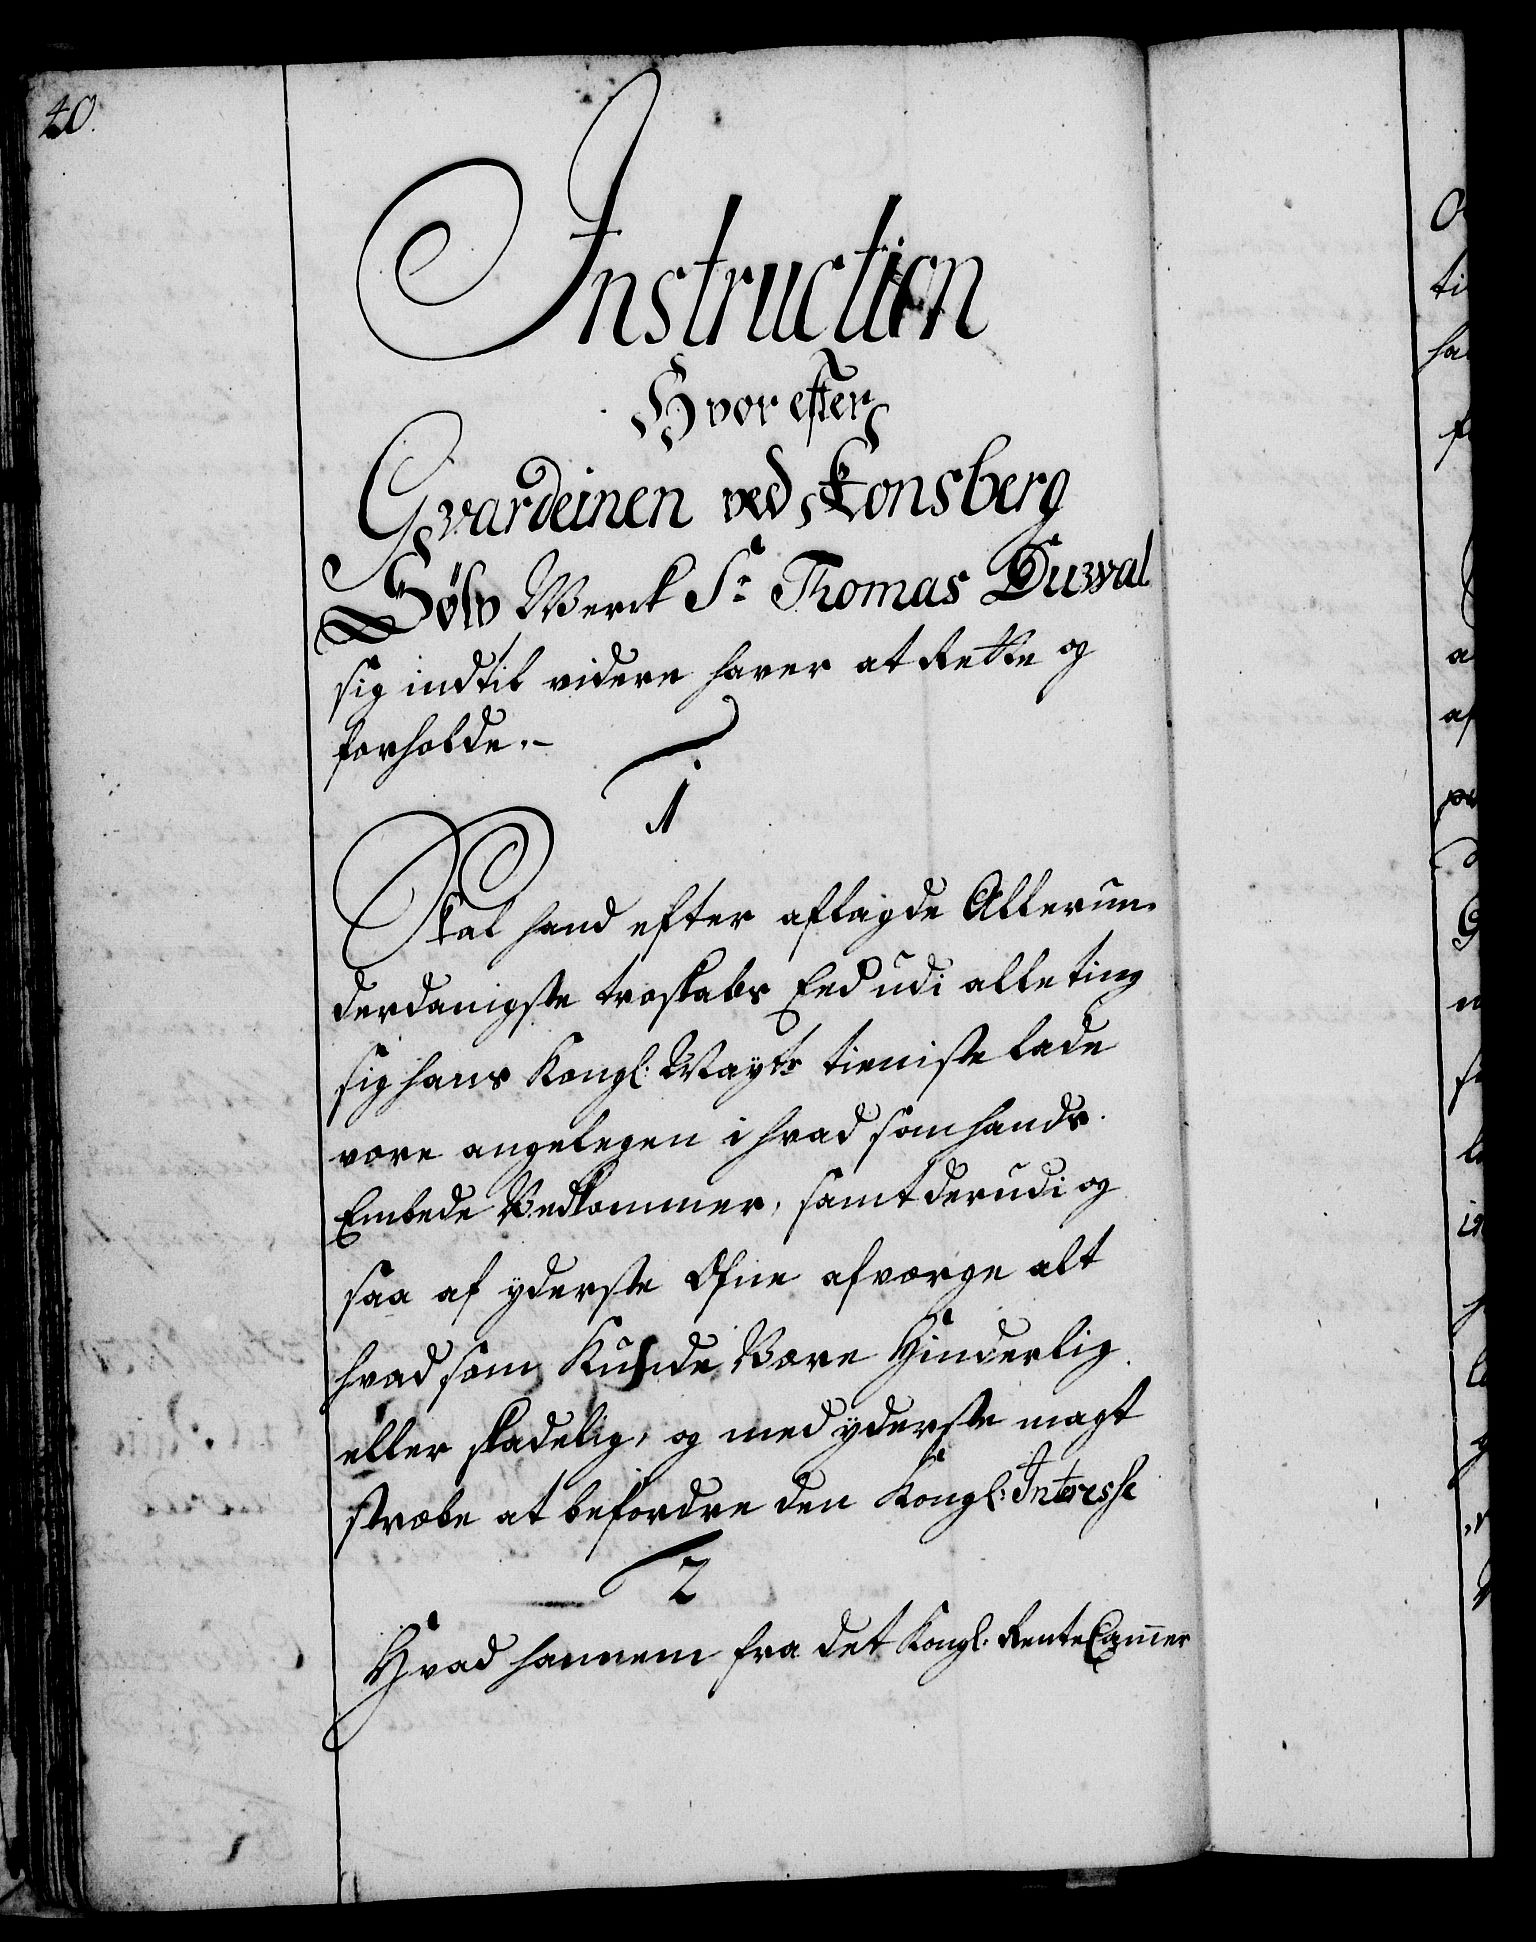 40.
Instruction
Hvor efter
Gvardeinen ved Konsberg
Sølv Werck Sr Thomas Duwal
sig indtil videre haver at Rette og
forholde.-
1
Skal hand efter aflagde Allerun-
derdanigste troskabs Eed udi alle ting
sig hans Kongl: Mayts tieniste lade
være angelegen i hvad som hands
Embede Vedkommer, samt derudi og
saa af yderste Efne afværge alt
hvad som Kunde Være Hinderlig
eller skadelig, og med yderste magt
stræbe at befordre den Kongl: Interesse
2
Hvad hannem fra det Kongl: RenteCammer